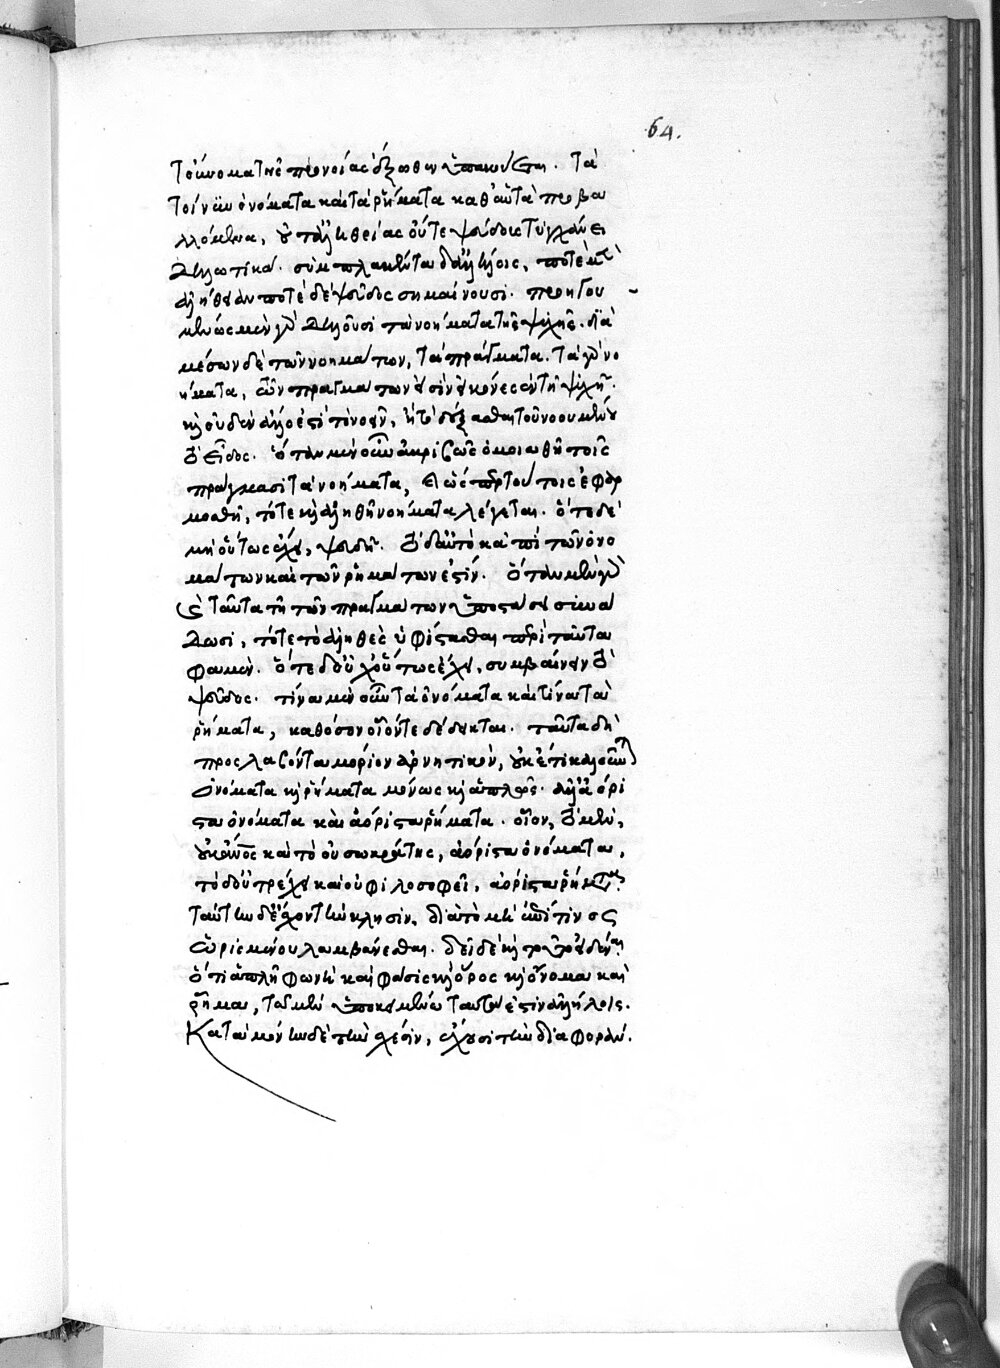 64.
τοὔνομα τῆς προνοίας ἔξωθεν . τὰ
τοίνυν ὀνόματα καὶ τὰ ῥήματα καθ' αὑτὰ προβα
λλόμενα, οὔτ' ἀληθείας οὔτε ψεύδους τυγχάνει
δηλωτικά. συμπλακέντα δ' ἀλλήλοις, ποτὲ μὲν
ἀλήθειαν ποτὲ δὲ ψεῦδος σημαίνουσι. προηγου
μένως μὲν γὰρ δηλοῦσι τὰ νοήματα τῆς ψυχῆς. διὰ
μέσων δὲ τῶν νοημάτων, τὰ πράγματα. τὰ γὰρ νο
ήματα, τῶν πραγμάτων εἰσὶν εἰκόνες ἐν τῇ ψυχῇ.
καὶ οὐδὲν ἄλλο ἐστὶ τὸ νοεῖν, ἢ τὸ δέξασθαι τοῦ νοουμένου
τὸ εἶδος. ὅταν μὲν οὖν ἀκριβῶς ὁμοιωθῇ τοῖς
πράγμασι τὰ νοήματα, ἐφαρ
μοσθῇ, τότε καὶ ἀληθῆ νοήματα λέγεται. ὅτε δὲ
μὴ οὕτως ἔχει, ψευδῆ. τὸ δ' αὐτὸ κἀπὶ τῶν ὀνο
μάτων καὶ τῶν ῥημάτων ἐστίν. ὅταν μὲν γὰρ
καὶ ταῦτα τῇ τῶν πραγμάτων ὑποστάσει συνᾴ
δωσι, τότε τὸ ἀληθὲς ὑφίστασθαι περὶ ταῦτα
φαμέν. ὅτε δ' οὐχ οὕτως ἔχει, συμβαίνειν τὸ
ψεῦδος. τίνα μὲν οὖν τὰ ὀνόματα καὶ τίνα τὰ
ῥήματα, καθόσον οἷόν τε δέδεικται. ταῦτα δὴ
προσλαβόντα μόριον ἀρνητικόν, οὐκ ἔτι καλοῦνται
ὀνόματα καὶ ῥήματα μόνως καὶ ἁπλῶς. ἀλλ' ἀόρι
στα ὀνόματα καὶ ἀόριστα ῥήματα. οἷον, τὸ μὲν,
οὐκ ἄνος καὶ τὸ οὐ σωκράτης, ἀόριστα ὀνόματα,
τὸ δ' οὐ τρέχει καὶ οὐ φιλοσοφεῖ, ἀόριστα ῥήματα.
ταύτην δ' ἔχοντα τὴν κλῆσιν, διὰ τὸ μὴ ἐπί τινος
ὡρισμένου λαμβάνεσθαι. δεῖ δὲ καὶ τοῦτο εἰδέναι
ὅτι ἁπλῆ φωνὴ καὶ φάσις καὶ ὅρος καὶ ὄνομα καὶ
ῥῆμα, τῷ μὲν ὑποκειμένῳ ταυτόν ἐστιν ἀλλήλοις.
Κατὰ μόνην δὲ τὴν σχέσιν, ἔχουσι τὴν διαφοράν.